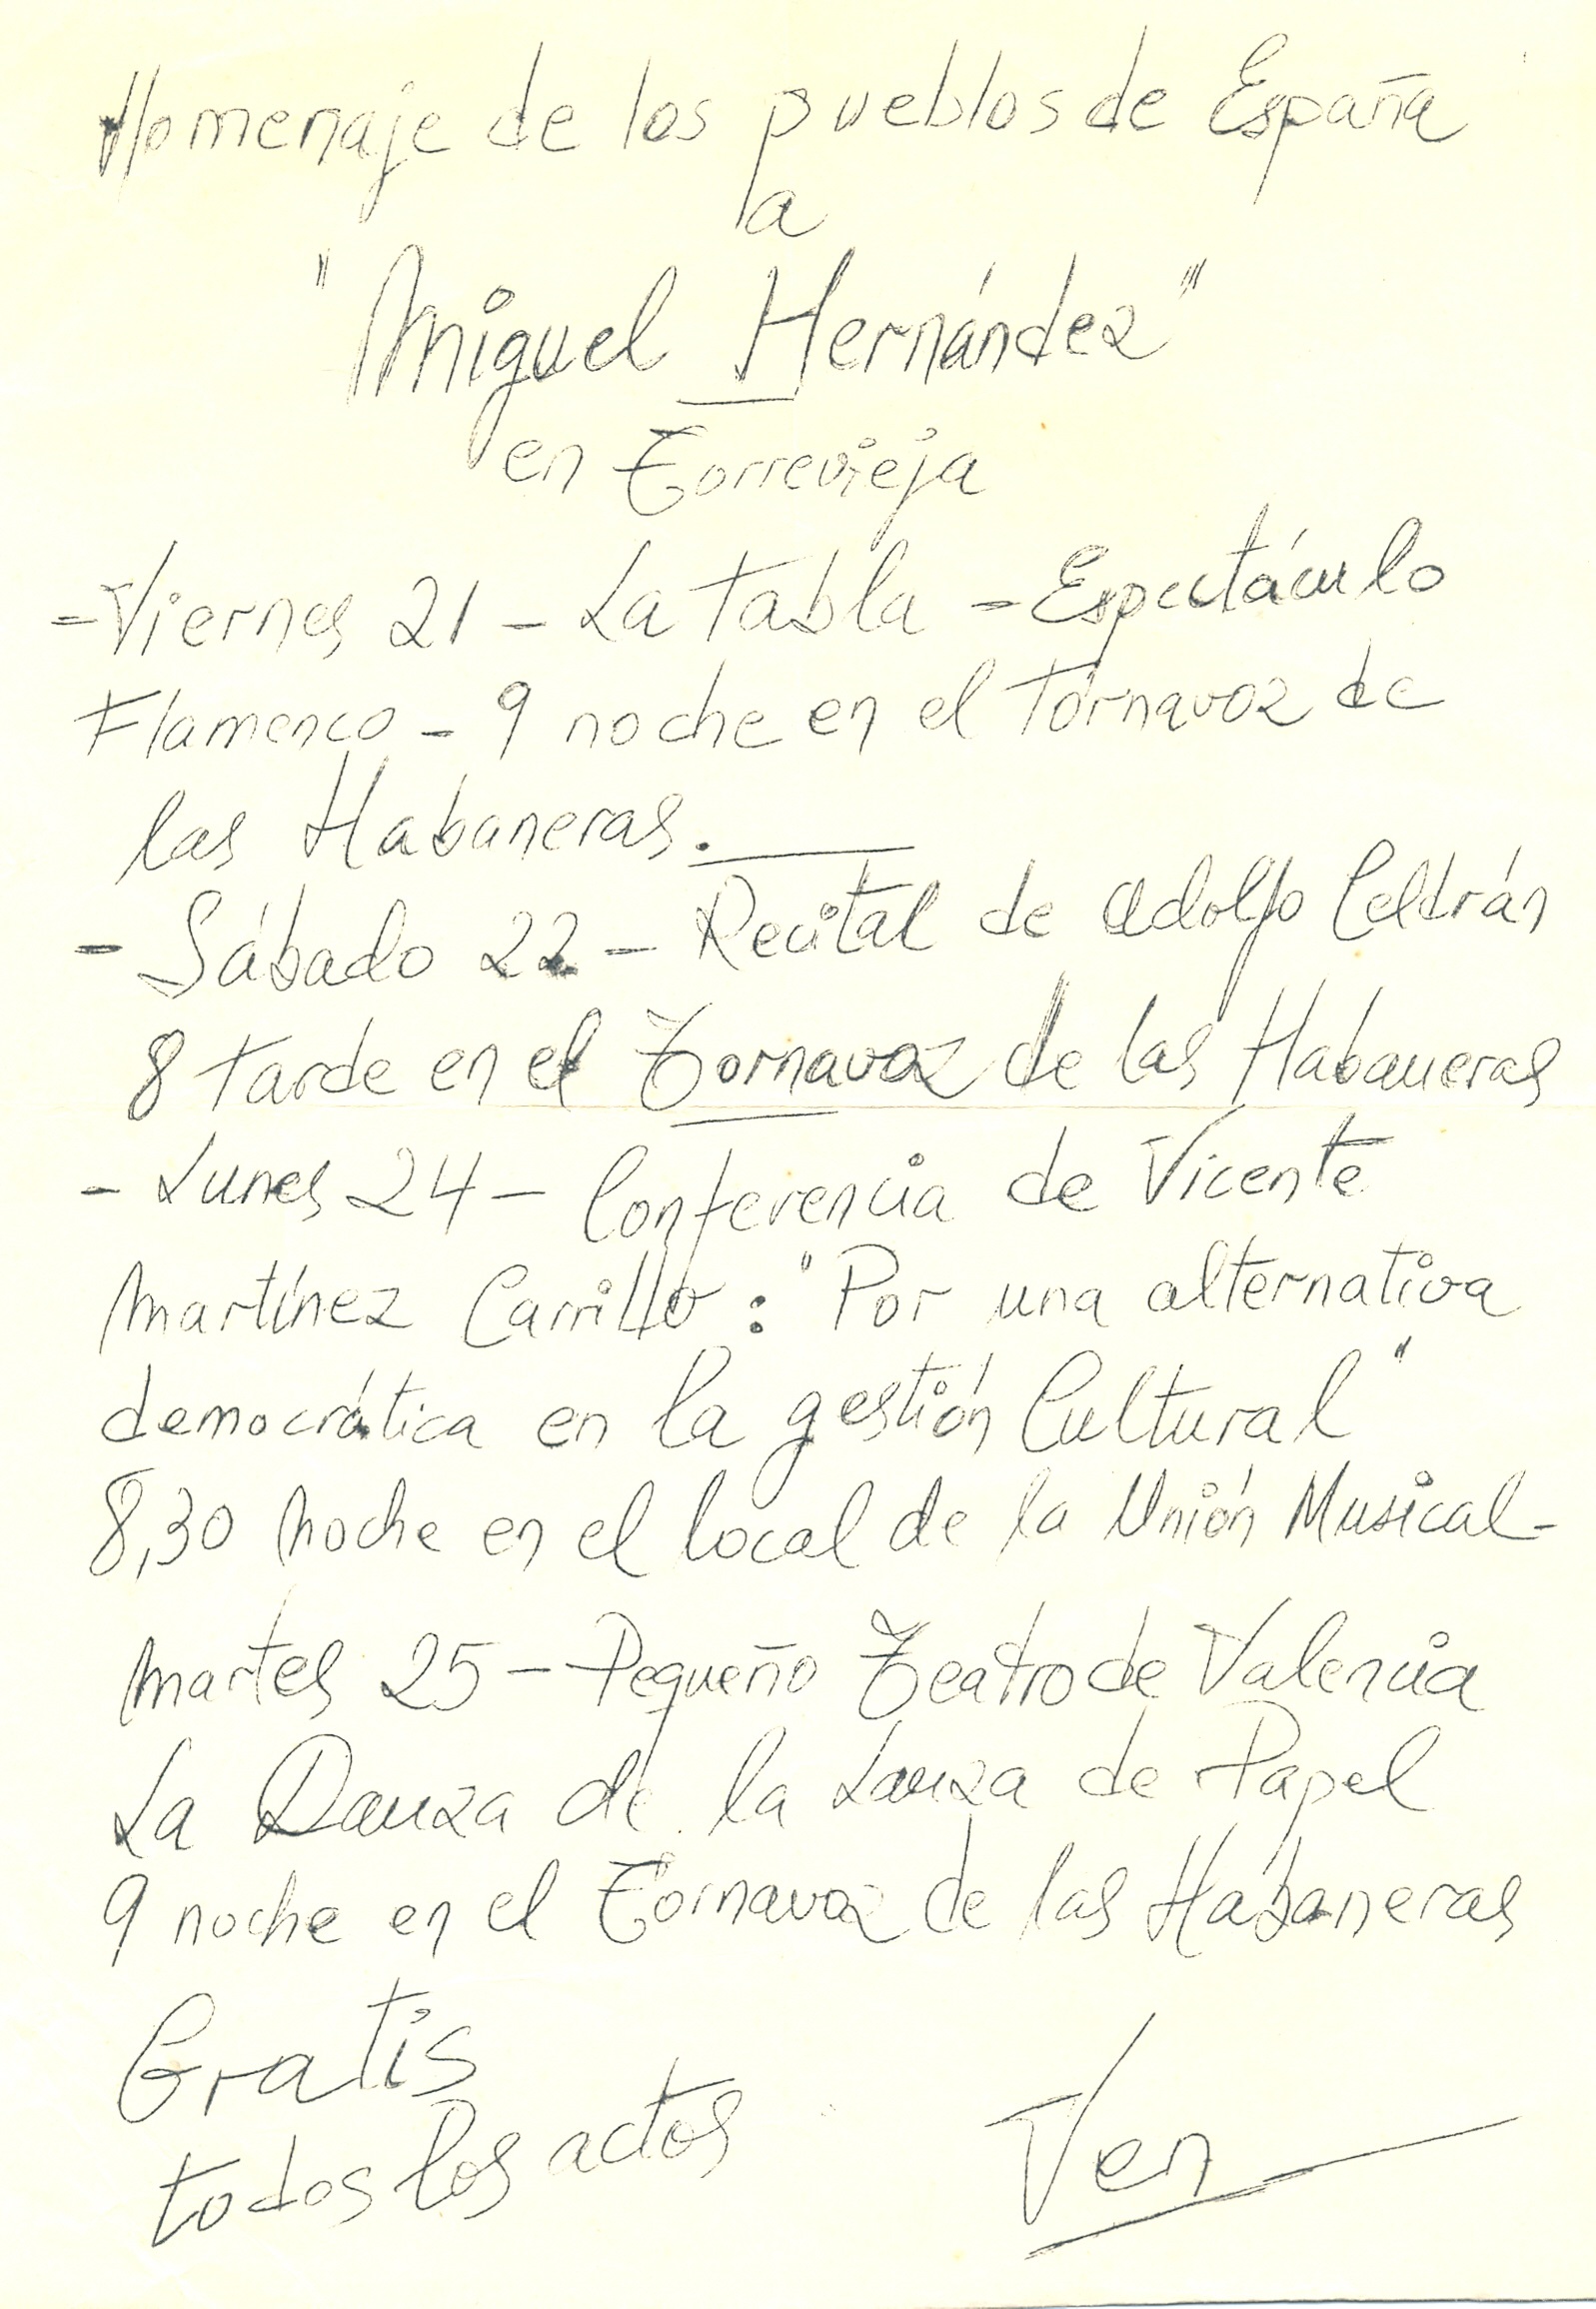 Homenaje de los pueblos de España
a
"Miguel Hernández"
en Torrevieja
- Viernes 21 - La Tabla - Espectáculo
Flamenco - 9 noche en el Tornavoz de
las Habaneras.
- Sábado 22 - Recital de Adolfo Celdrán
8 tarde en el Tornavoz de las Habaneras
- Lunes 24 - Conferencia de Vicente
Martínez Carrillo: "Por una alternativa
democrática en la gestión Cultural"
8,30 noche en el local de la Unión Musical-
Martes 25 - Pequeño Teatro de Valencia
La Danza de la Lanza de Papel
9 noche en el Tornavoz de las Habaneras
Gratis
todos los actos
Ven